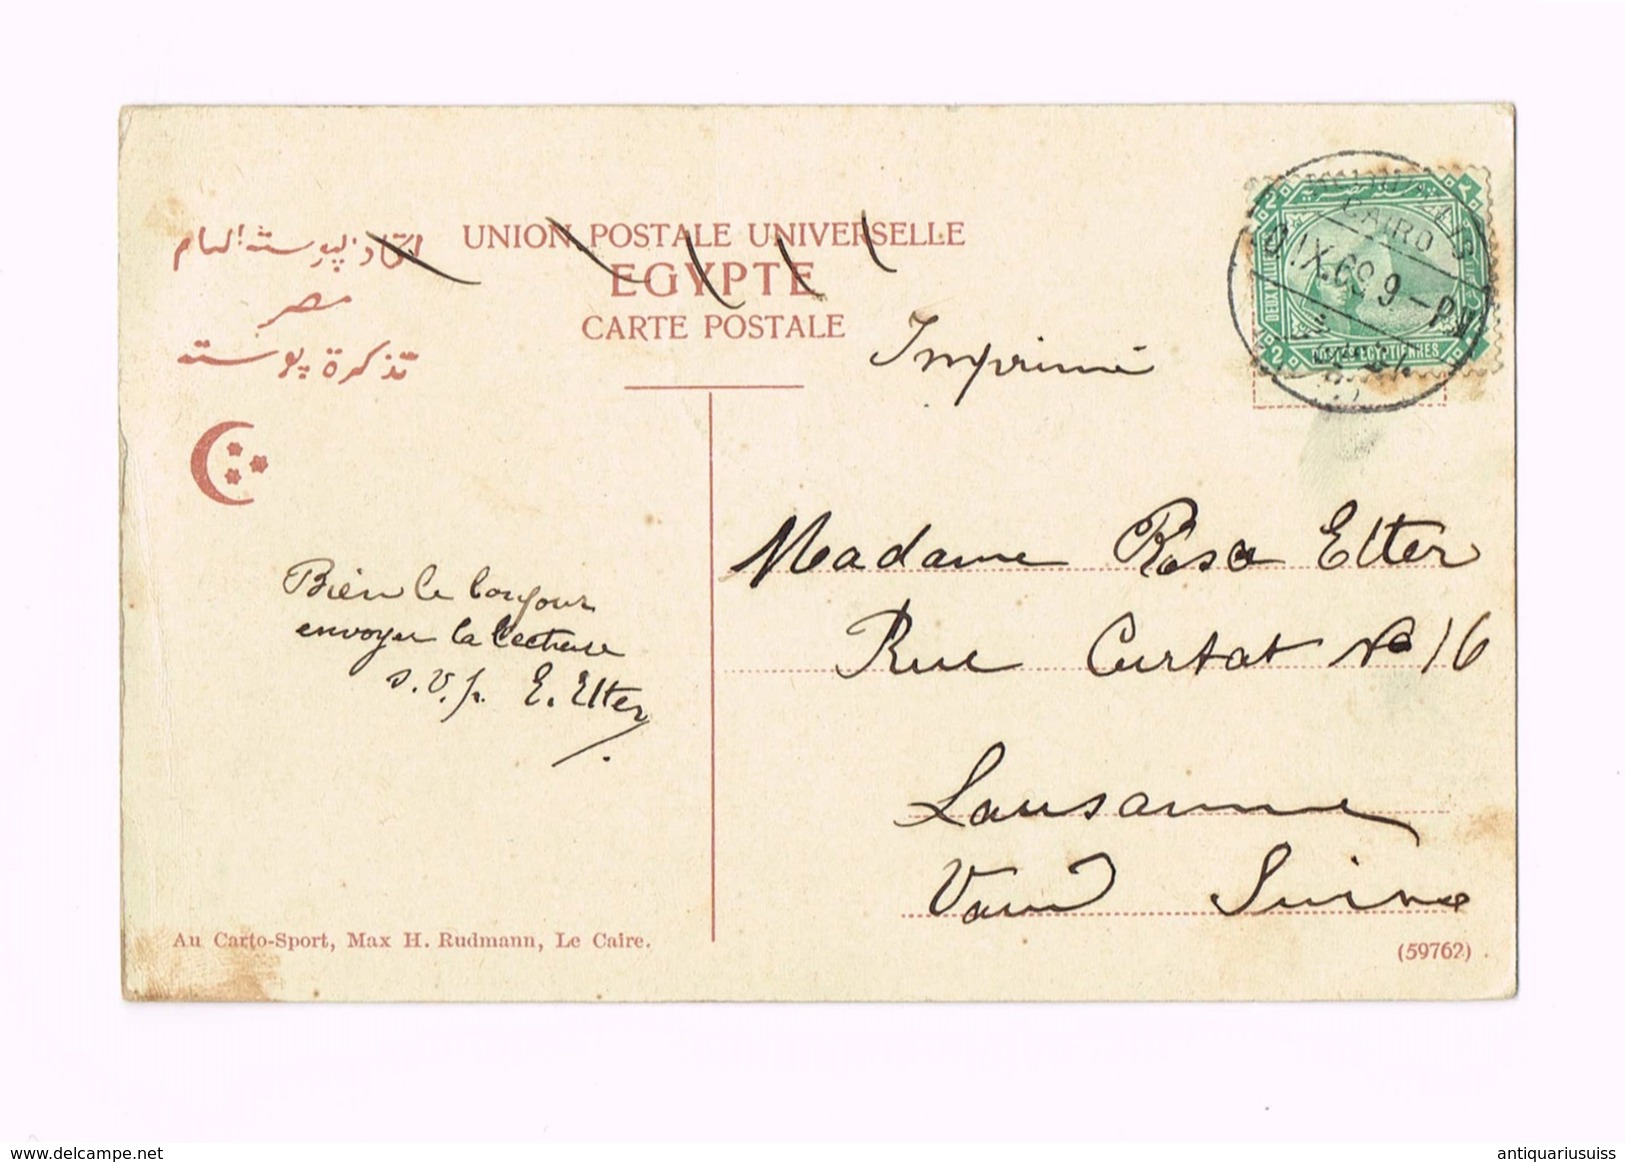 UNION POSTALE UNIVERSELLE
EGYPTE
CARTE POSTALE
اتحاد البوسته العام
مصر
تذكرة بوسته
Imprimé
CAIRO
IX.09 9-PM
2
2
DEUX MILLIEMES
EGYPTIENNES
Bien le bonjour
envoyer la lectrice
s.v.p. E. Etter
Madame Rosa Etter
Rue Curtat No 16
Lausanne
Vaud Suisse
Au Carto-Sport, Max H. Rudmann, Le Caire.
(59762)
www.delcampe.net
antiquariusuiss